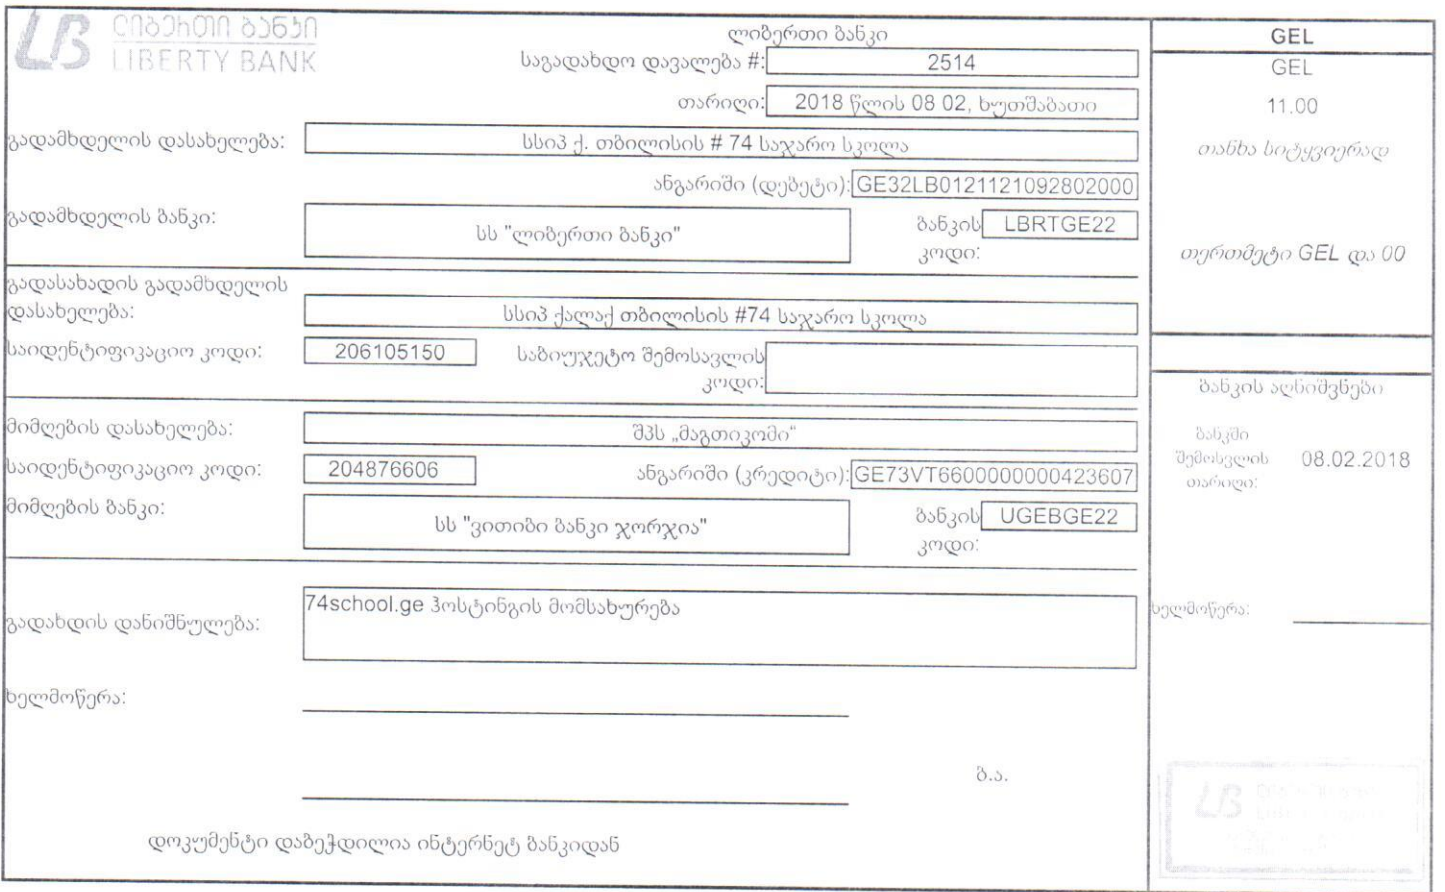 ლიბერთი ბანკი
LIBERTY BANK
ლიბერთი ბანკი
საგადახდო დავალება #: 2514
თარიღი: 2018 წლის 08 02, ხუთშაბათი
გადამხდელის დასახელება: სსიპ ქ. თბილისის # 74 საჯარო სკოლა
ანგარიში (დებეტი): GE32LB0121121092802000
გადამხდელის ბანკი: სს "ლიბერთი ბანკი" ბანკის კოდი: LBRTGE22
გადასახადის გადამხდელის
დასახელება: სსიპ ქალაქ თბილისის #74 საჯარო სკოლა
საიდენტიფიკაციო კოდი: 206105150 საბიუჯეტო შემოსავლის
კოდი:
მიმღების დასახელება: შპს „მაგთიკომი“
საიდენტიფიკაციო კოდი: 204876606 ანგარიში (კრედიტი): GE73VT6600000000423607
მიმღების ბანკი: სს "ვითიბი ბანკი ჯორჯია" ბანკის კოდი: UGEBGE22
გადახდის დანიშნულება: 74school.ge ჰოსტინგის მომსახურება
ხელმოწერა:
ბ.ა.
დოკუმენტი დაბეჭდილია ინტერნეტ ბანკიდან
GEL
GEL
11.00
თანხა სიტყვიერად
თერთმეტი GEL და 00
ბანკის აღნიშვნები
ბანკში
შემოსვლის 08.02.2018
თარიღი:
ხელმოწერა:
LB